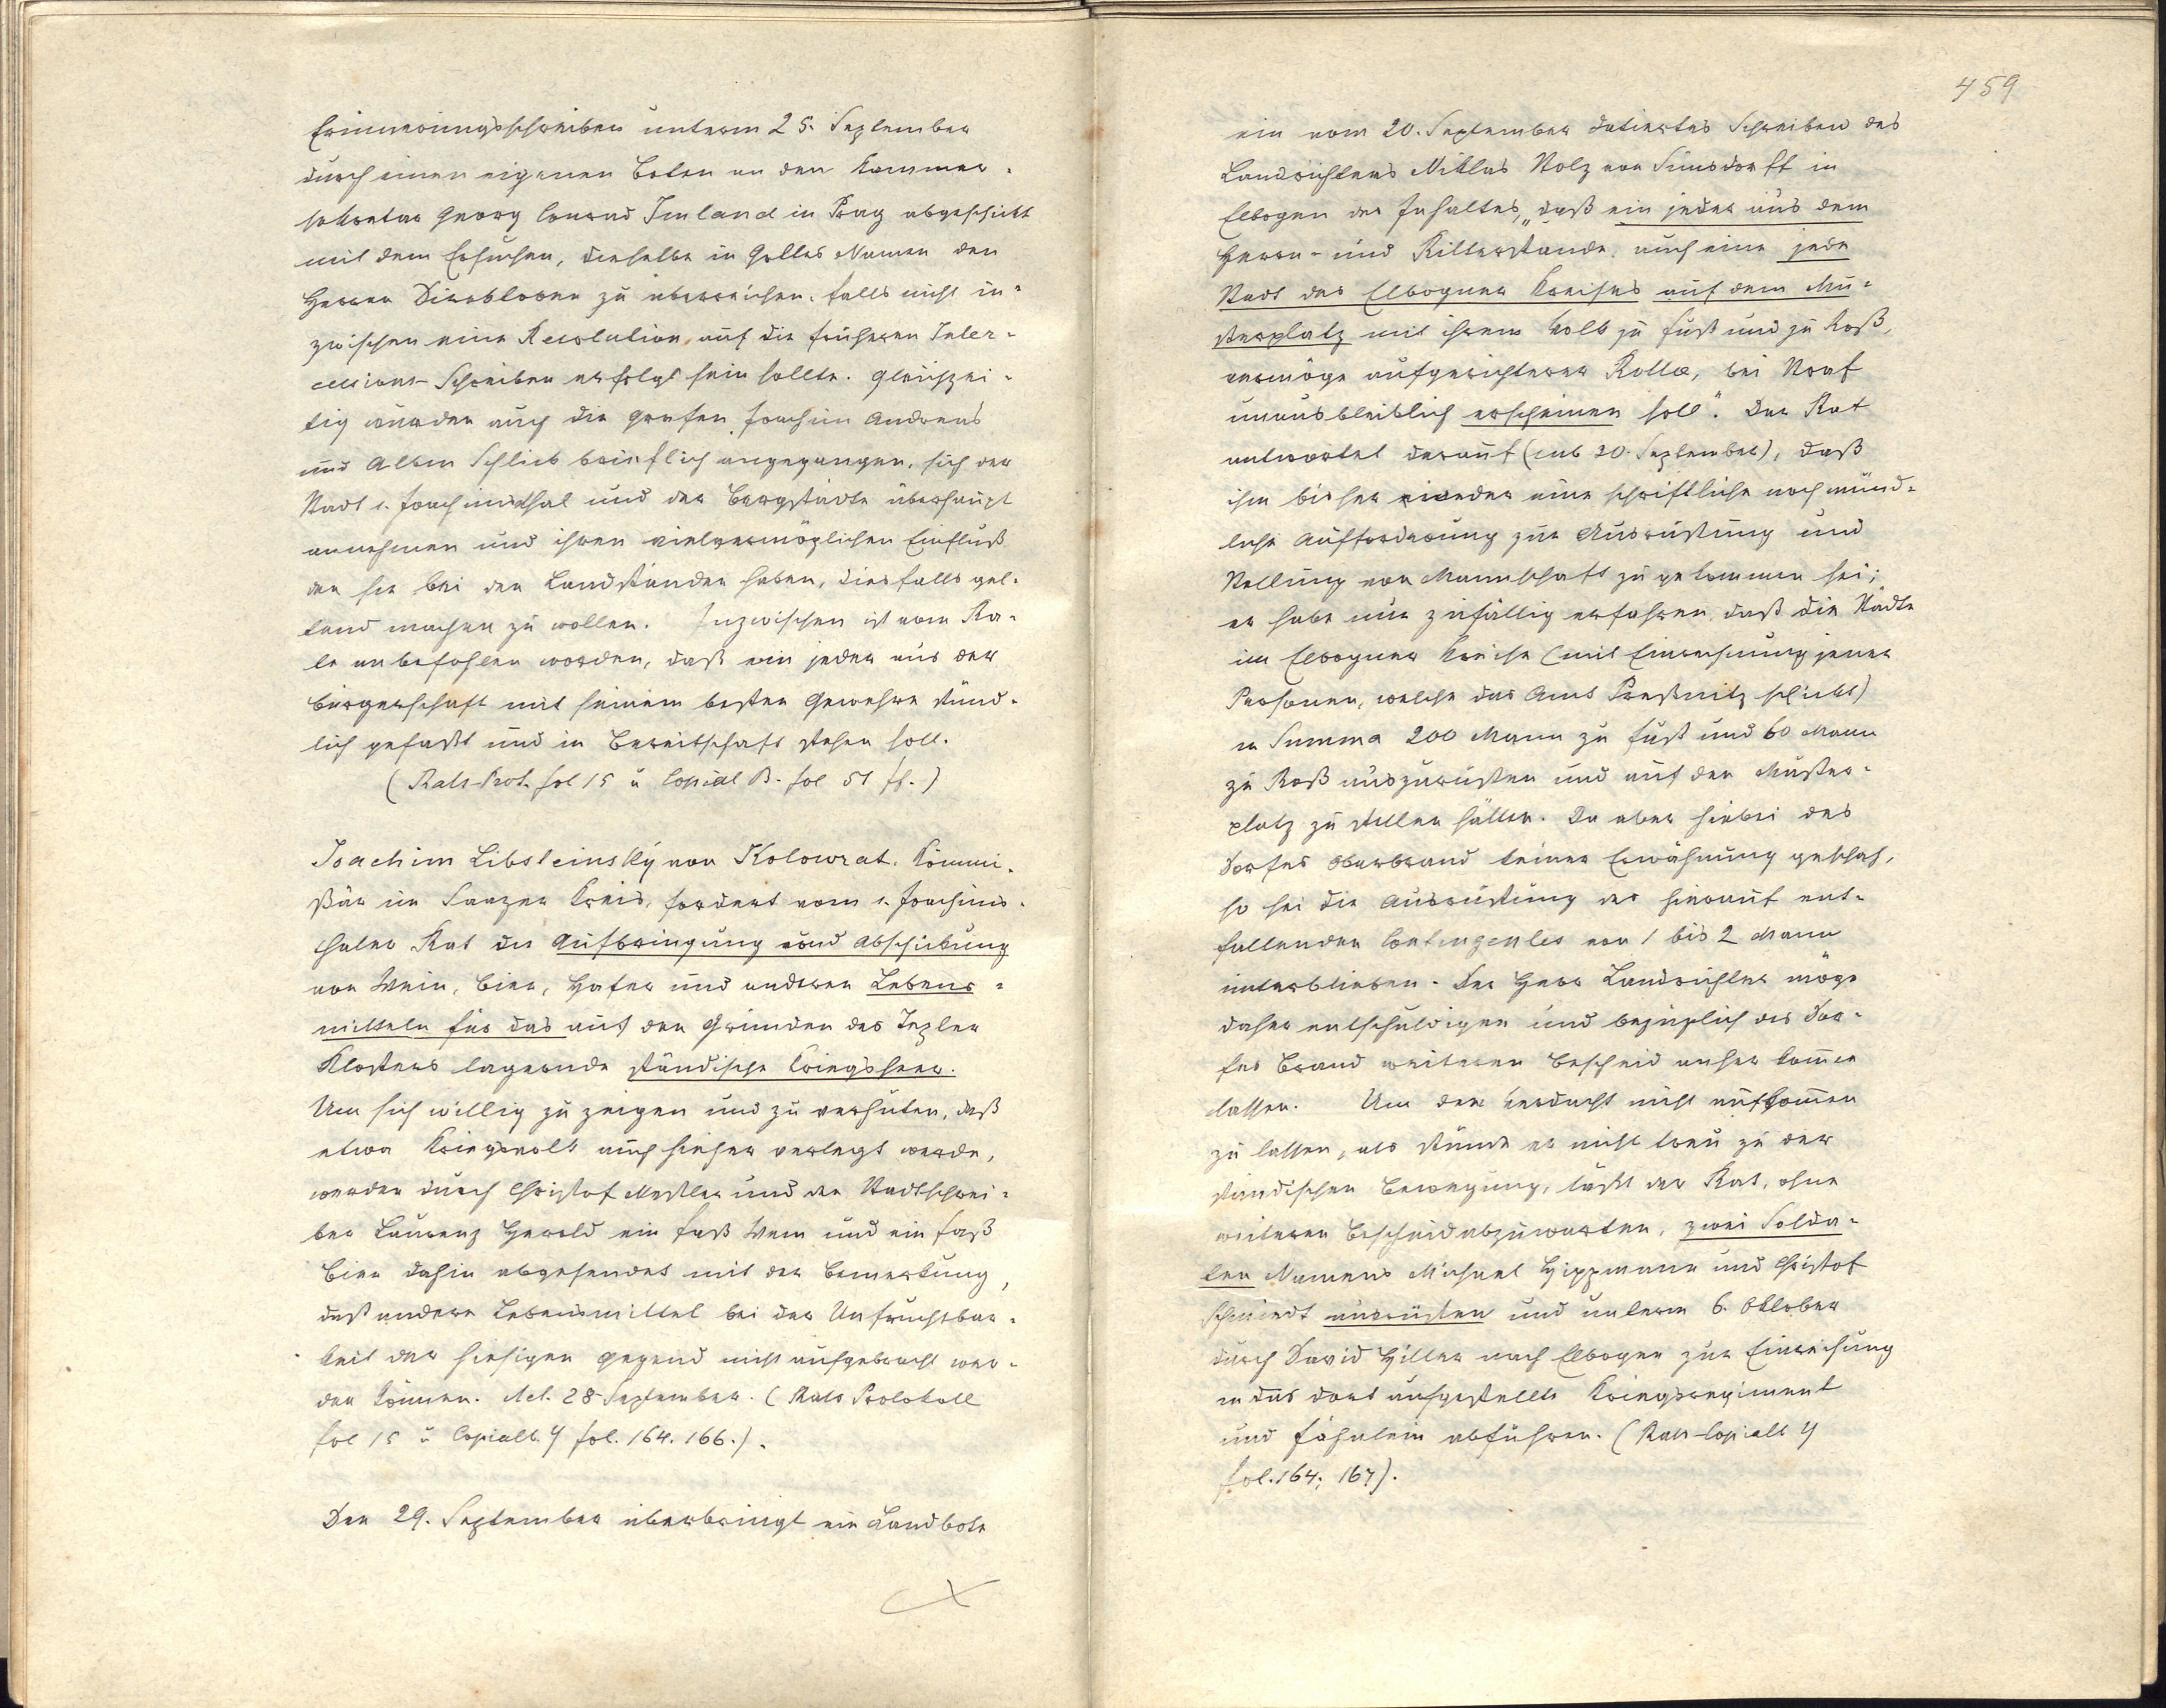 Erinnerungsschreiben unterm 25. September
durch einen eigenen Boten an den Kammer-
sekretär Georg Conrad Imland in Prag abgeschickt
mit dem Ersuchen, dieselbe in Gottes Namen den
Herren Direktoren zu überreichen, falls nicht in-
zwischen eine Resolution auf die früheren Inter-
cessions-Schreiben erfolgt sein sollte. Gleichzei-
tig wurden auch die Grafen Joachim Andreas
und Albin Schlick brieflich angegangen, sich der
Stadt s. Joachimsthal und der Bergstädte überhaupt
annehmen und ihren vielvermöglichen Einfluß
den sie bei den Landständen haben, diesfalls gel-
tend machen zu wollen. Inzwischen ist vom Ra-
te anbefohlen worden, daß ein jeder aus der
Bürgerschaft mit seinem besten Gewehre stünd-
lich gefaßt und in Bereitschaft stehen soll.
(Rats-Prot. fol 15 u Copial B. fol 51 ff.)
Joachim Libsteinský von Kolowrat, Kommi-
ßär im Saazer Kreis, fordert vom s. Joachims-
thaler Rat die Aufbringung und Abschickung
von Wein, Bier, Hafer und anderen Lebens-
mitteln für das auf den Gründen des Tepler
Klosters lagernde ständische Kriegsheer.
Um sich willig zu zeigen und zu verhüten, daß
etwa Kriegsvolk auch hieher verlegt werde,
werden durch Christof Meßler und den Stadtschrei-
ber Laurenz Herold ein Faß Wein und ein Faß
Bier dahin abgesendet mit der Bemerkung,
daß andere Lebensmittel bei der Unfruchtbar-
keit der hiesigen Gegend nicht aufgebracht wer-
den können. Act. 28 September. (Rats Protokoll
fol 15 u Copialb. 4 fol. 164. 166.).
Den 29. September überbringt ein Landbote
459
ein vom 20. September datiertes Schreiben des
Landrichters Niklas Stolz von Simsdorff in
Elbogen des Inhaltes, „daß ein jeder aus dem
Herrn- und Ritterstande, auch eine jede
Stadt des Elbogner Kreises auf dem Mu-
sterplatz mit ihrem Volk zu Fuß und zu Roß,
vermöge aufgerichteter Rolle, bei Straf
unausbleiblich erscheinen soll“. Der Rat
antwortet darauf (sub 30. September), daß
ihm bisher weder eine schriftliche noch münd-
liche Aufforderung zur Ausrüstung und
Stellung von Mannschaft zugekommen sei;
er habe nur zufällig erfahren, daß die Städte
im Elbogner Kreise (mit Einrechnung jener
Personen, welche das Amt Preßnitz schickt)
in Summa 200 Mann zu Fuß und 60 Mann
zu Roß auszurüsten und auf den Muster-
platz zu stellen hätten. Da aber hiebei des
Dorfes Oberbrand keiner Erwähnung geschah,
so sei die Ausrüstung des hierauf ent-
fallenden Contingentes von 1 bis 2 Mann
unterblieben. Der Herr Landrichter möge
daher entschuldigen und bezüglich des Dor-
fes Brand weiteren Bescheid anher kommen
lassen. Um den Verdacht nicht aufkommen
zu lassen, als stünde er nicht treu zu der
ständischen Bewegung, läßt der Rat, ohne
weiteren Bescheid abzuwarten, zwei Solda-
ten Namens Michael Hippmann und Christof
Schmiedt ausrüsten und unterm 6. Oktober
durch David Hiller nach Elbogen zur Einreihung
in das dort aufgestellte Kriegsregiment
und Fähnlein abführen. (Rats-Copialb 4
fol. 164; 167).